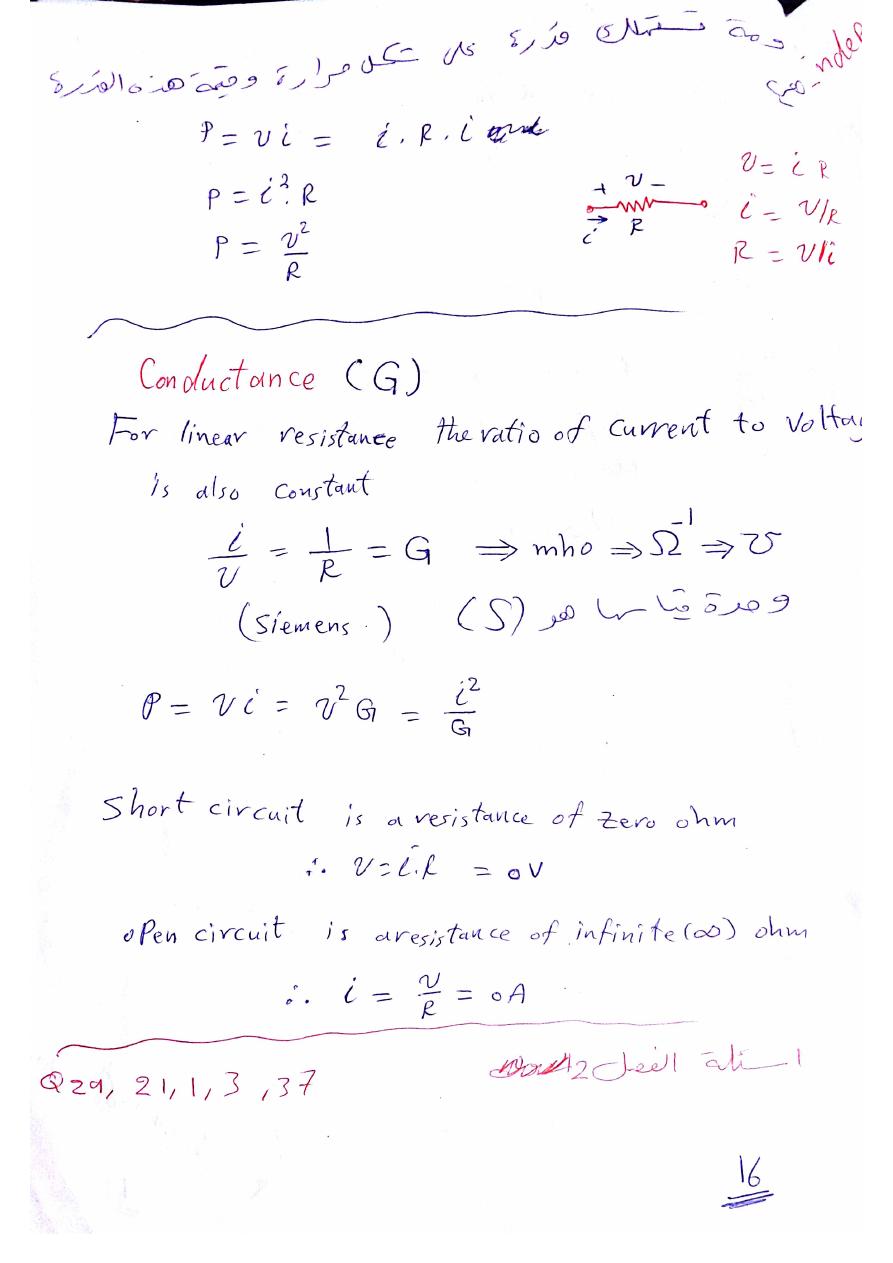 ومة تستهلك قدرة على شكل حرارة وقيمة هذه القدرة
هي
P = v i = i . R . i
P = i² . R
P = v² / R
+ v -
i R
v = i R
i = v/R
R = v/i
Conductance (G)
For linear resistance the ratio of current to voltag
is also constant
i / v = 1 / R = G ⇒ mho ⇒ Ω⁻¹ ⇒ ℧
وحدة قياسها هو (S) (Siemens.)
P = v i = v² G = i² / G
Short circuit is a resistance of zero ohm
∴ v = i.R = 0V
open circuit is a resistance of infinite (∞) ohm
∴ i = v / R = 0A
اسئلة الفصل 2
Q29, 21, 1, 3, 37
16